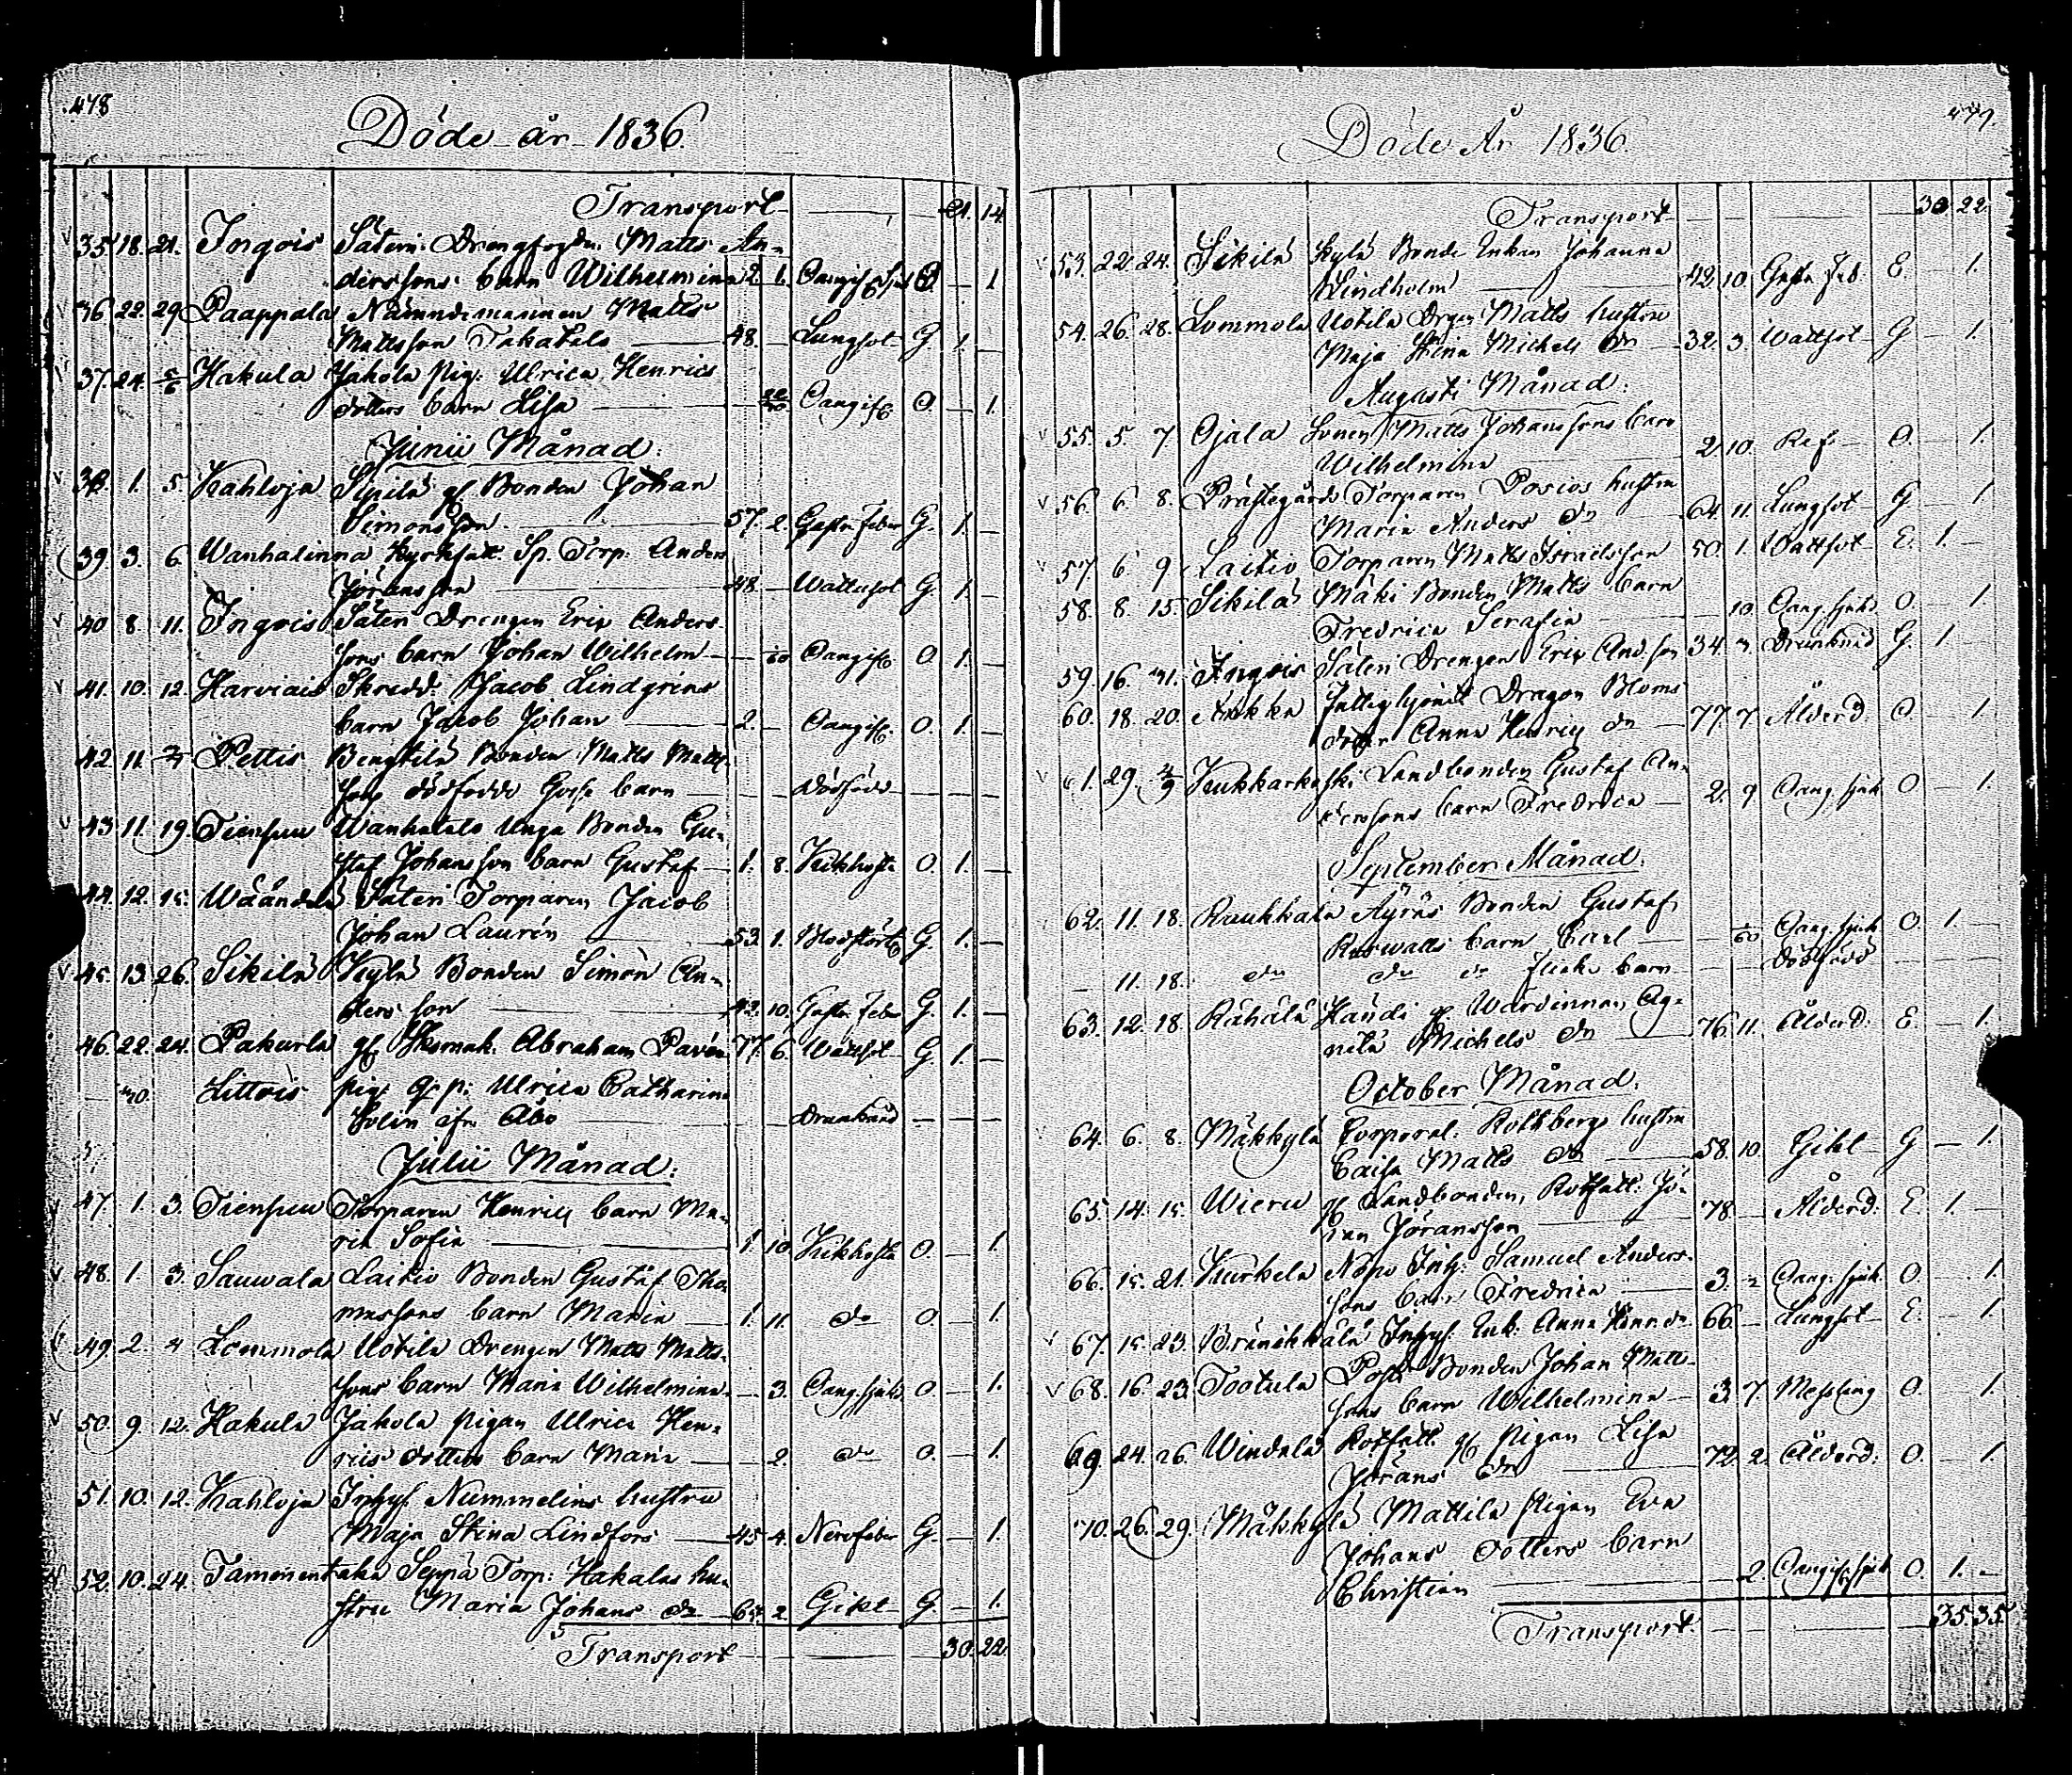 478
Döde år 1836.
Transport 21. 14.
35. 18. 21. Ingois Säteri Drengfogdn. Matts An-
derssons barn Wilhelmina 2. 1. Oangif. Sjuk O. — 1
36 22. 29 Paappala Nämndemannen Matts
Mattsson Takatalo 48. — Lungsot G. 1. —
37. 24. 5/6 Hakula Jakola Pig. Ulrica Henrics
dotters barn Lisa Oangif. O. — 1.
Junii Månad.
38. 1. 5 Kahloja Sipilä gf. Bonden Johan
Simonsson 57. 2. Gastr. Feber G. 1. —
39. 3. 6. Wanhalinna Kyrkfatt. Sp. Torp. Anders
Jöransson 48. — Wattusot G. 1. —
40 8. 11. Ingois Säteri Drengen Eric Anders-
sons barn Johan Wilhelm Oangif. O. 1. —
41. 10. 12. Harviais Skredd. Jacob Lindgrens
barn Jacob Johan 2. — Oangif. O. 1. —
42 11. Pettis Bengtilä Bonden Matts Matts-
sons dödfödde Gosse barn — — Dödfödd — — —
43 11. 19. Tiensuu Wanhatalo Unga Bonden Gu-
staf Johansson barn Gustaf 1. 8. Kikhosta O. 1. —
44. 12. 15. Wääntelä Säteri Torparen Jacob
Johan Laurén 53. 1. Blodstört. G. 1. —
45. 13 26. Sikilä Kylä Bonden Simon An-
dersson 42. 10. Gastr. Feber G. 1. —
46. 22. 24. Pakurla gf. Abraham Pavén 77. 6. Wattsot G. 1. —
— 30. Littois pig. Ulrica Catharina
Bolin ifr. Åbo Drunknad — — —
Julii Månad.
47. 1. 3. Tiensuu Torparen Henrics barn Ma-
ria Sofia 1. 10. Kikhosta O. — 1.
48. 1. 3. Sauwala Laitio Bonden Gustaf Tho-
massons barn Maria 1. 11. do O. — 1.
49. 2. 4 Lommola Uotila Drengen Matts Matts-
sons barn Maria Wilhelmina — 3. Oang. sjuk. O. — 1.
50. 9. 12. Hakula Jakola pigan Ulrica Hen-
rics dotters barn Maria — 2. do O. — 1.
51. 10. 12. Kahloja Inhys. Nummelins hustru
Maja Stina Lindfors 45 4. Nervfeber G. — 1.
52. 10. 24. Tammentaka Seppä Torp. Hakalas hu-
stru Maria Johans dr 65. 2. Gikt G. — 1.
Transport 30. 22.
479.
Döde År 1836.
Transport 30 22.
53. 22. 24. Sikilä Kylä Bonde Enkan Johanna
Lindholm 42. 10. Gastr. Feb. E. — 1.
54. 26. 28. Lommola Uotila Drgen Matts hustru
Maja Stina Michels dr 32. 3. Wattsot G — 1.
Augusti Månad.
55. 5. 7. Ojala Sonen Matts Johanssons barn
Wilhelmina 2 10. Ref O. — 1.
56. 6. 8. Prästegårds Torparen Posios hustru
Maria Anders dr 64. 11. Lungsot G. — 1
57. 6 9 Laitio Torparen Matts Israelsson 50. 1. Wattsot E. 1. —
58. 8. 15. Sikilä Mäki Bonden Matts barn
Fredrica Serafia — 10. Oang. sjuk. O. — 1.
59. 16. 21. Ingois Säteri Drengen Eric And.son 34. 3. Drunknad G. 1
60. 18. 20. Fattighjonet Dragon Bloms
Anna Henrics dr 77. 7 Ålderd. O — 1.
61. 29. 4/9 Kukkarkoski Landbonden Gustaf An-
derssons barn Fredrica 2. 9 Oang. sjuk. O — 1.
September Månad.
62. 11. 18. Raukkala Äyräs Bonden Gustaf
barn Carl Oang. sjuk. O. 1. —
— 11. 18. do do do flicke barn — — Dödfödd — — —
63. 12. 18. Rähälä Händi gf. Wärdinnan Ag-
neta Michels dr 76. 11. Ålderd. E. — 1.
October Månad.
64. 6. 8. Mäkkylä Corporal. Rothbergs hustru
Caisa Matts dr 58. 10. Gikt G — 1.
65. 14. 15. Wieru gf. Landbonden, Rotfatt. Jö-
ran Jöransson 78. — Ålderd. E. 1. —
66. 15. 21. Kurkela Nopo Inh. Samuel Anders-
sons barn Fredrica 3. 2 Oang. sjuk. O. — 1.
67. 15. 23. Bränikkälä Inhys. Enk. Anna Henr. dr 66. — Lungsot E. — 1.
68. 16. 23. Tootula Posti Bonden Johan Matts-
sons barn Wilhelmina 3. 7. Messling O. — 1.
69. 24. 26. Windala Rotfatt. gf. pigan Lisa
Jörans dr 72. 2. Ålderd. O. — 1.
70. 26. 29. Mäkkylä Mattila Pigan Eva
Johans dotters barn
Christian 2. Oangif. sjuk. O. 1. —
Transport. 35. 35.